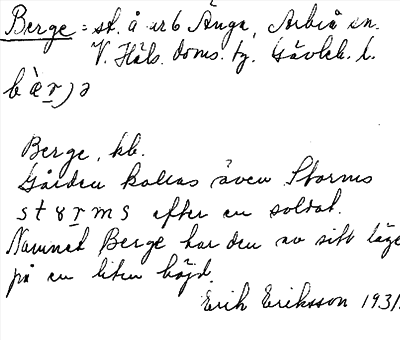 Berge = st. å nr 6 Änga, Arbrå sn.
V. Häls. doms. tg. Gävleb. l.
bæ̀r̠jə
Berge, kb.
Gården kallas även Storms
storms efter en soldat.
Namnet Berge har den av sitt läge
på en liten höjd.
Erik Eriksson 1931.